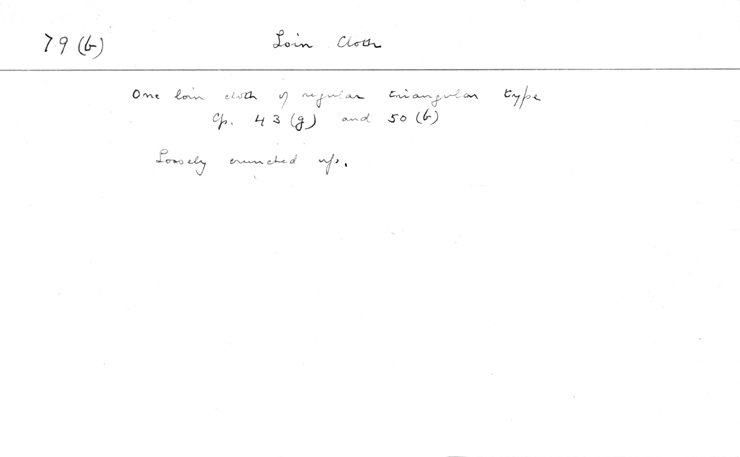 79 (b) Loin Cloth
One loin cloth of regular triangular type
Cp. 43 (g) and 50 (b)
Loosely crunched up.